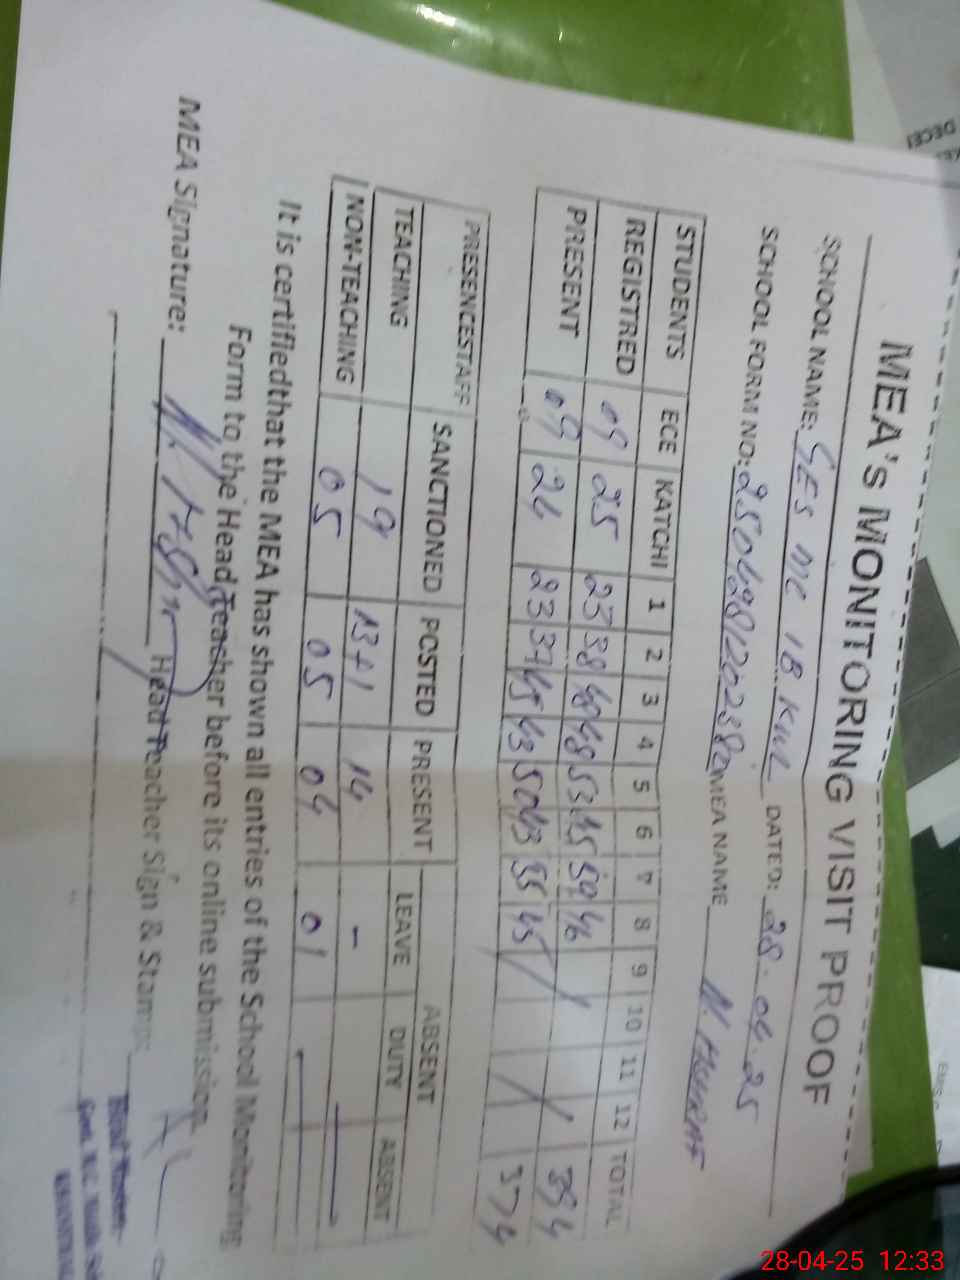 MEA'S MONITORING VISIT PROOF
SCHOOL NAME: GES MC 18 KWL DATED: 28.04.25
SCHOOL FORM NO: MEA NAME
STUDENTS ECE KATCHI 1 2 3 4 5 6 7 8 9 10 11 12 TOTAL
REGISTRED 09 25 23 38 48 48 53 45 59 46 394
PRESENT 09 24 23 37 45 43 50 43 55 45 374
PRESENCESTAFF SANCTIONED POSTED PRESENT ABSENT
LEAVE DUTY ABSENT
TEACHING 19 13+1 14 -
NON-TEACHING 05 05 04 01
It is certifiedthat the MEA has shown all entries of the School Monitoring
Form to the Head Teacher before its online submission.
MEA Signature: Head Teacher Sign & Stamp:
28-04-25 12:33